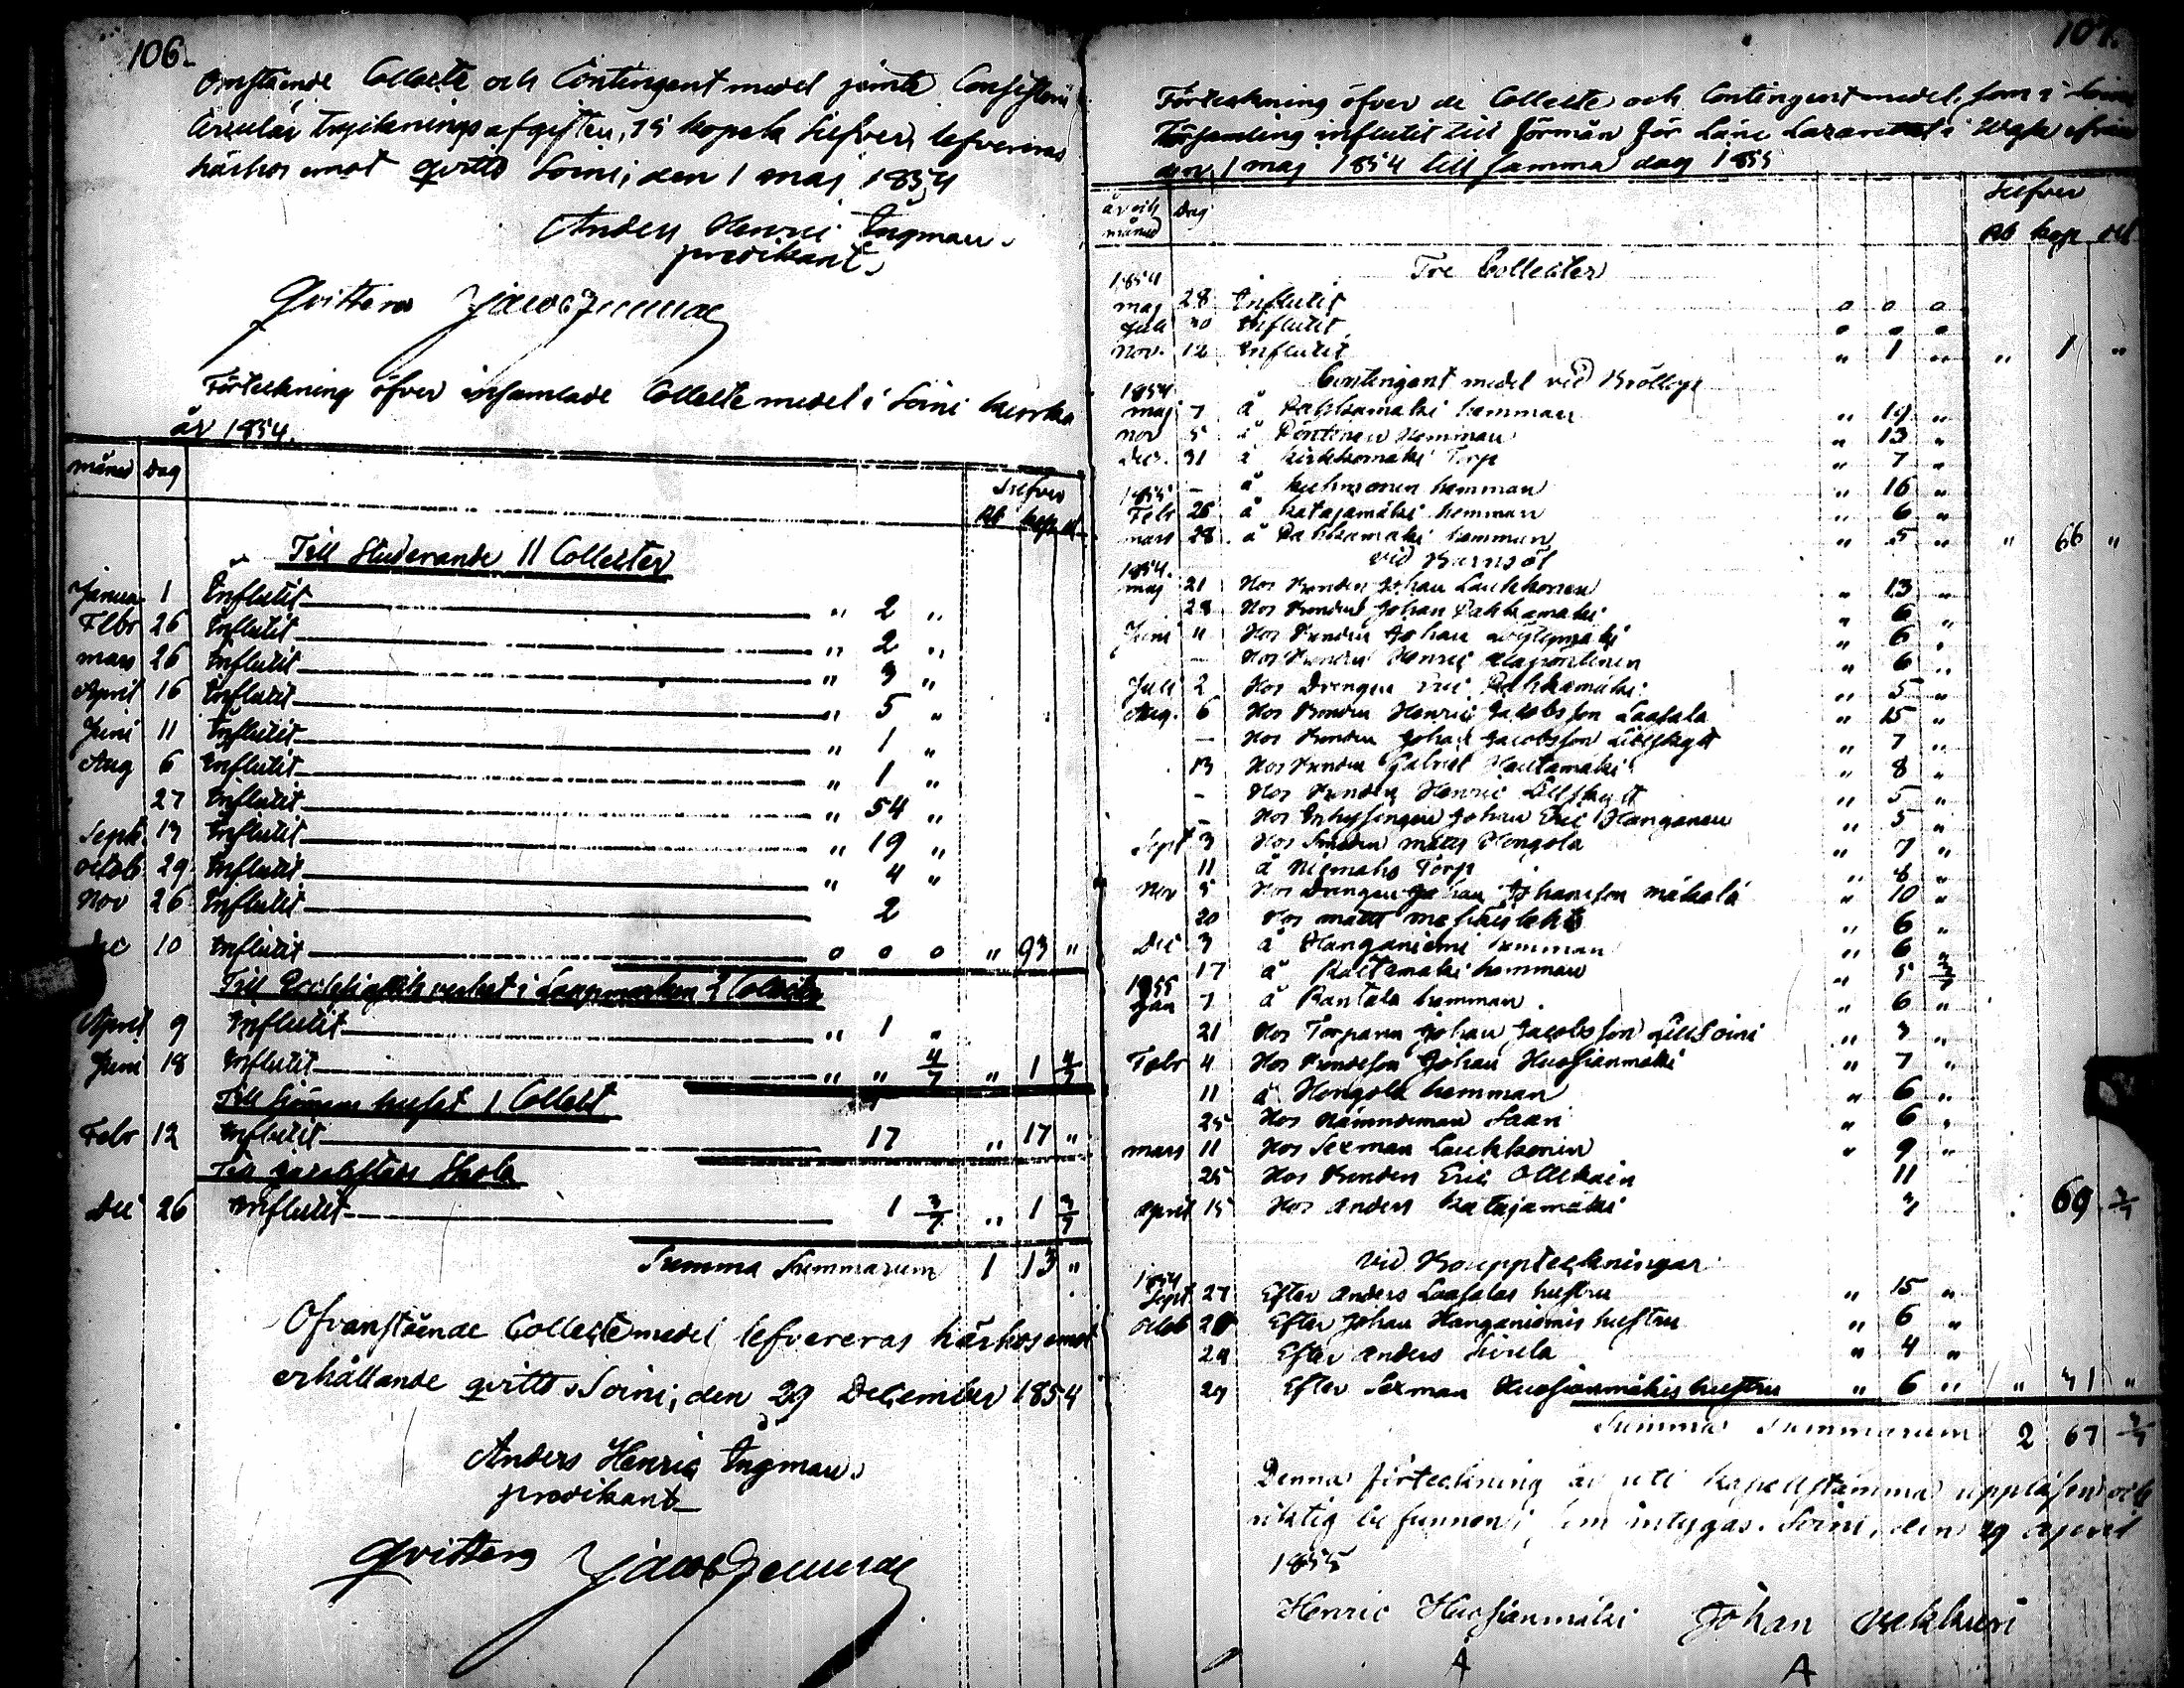 106.
Omstående Collecte och Contingent medel jämte Consistorii
Circulär trycknings afgiften, 15 kopek Silfver, lefvereras
härhos emot qvitto Soini, den 1 maj 1854
Anders Henric Ingman.
predikant.
Qvitteras Jacob
Förteckning öfver insamlade Collecte medel i Soini kÿrka
år 1854.
månad Dag Silfver
Rb kop dl
Till Studerande 11 Collecter
Januar 1 Influtit " 2 "
Febr 26 Influtit " 2 "
mars 26 Influtit " 3 "
April 16 Influtit " 5 "
Juni 11 Influtit " 1 "
Aug 6 Influtit " 1 "
27 Influtit " 54 "
Sept. 17 Influtit " 19 "
octob 29 Influtit " 4 "
Nov 26 Influtit 2
Dec 10 Influtit o o o " 93 "
Till i Lappmarken 2 Collecter
April 9 Influtit " 1 "
Juni 18 Influtit " " 4/7 " 1 4/7
Till huset 1 Collect
Febr 12 Influtit 17 " 17 "
Till Skola
Dec 26 Influtit 1 3/7 " 1 3/7
Summa Summarum 1 13 "
Ofvanstående Collecte medel lefvereras härhos emot
erhållande qvitto Soini, den 29 December 1854
Anders Henric Ingman.
predikant
Qvitteras Jacob
107.
Förteckning öfver de Collecte och Contingent medel, som i Soini
Församling influtit till förmån för Läns Lazarettet i Wasa ifrån
den 1 maj 1854 till samma dag 1855
år och månad Dag Silfver
Rb kop del
Tre Collecter
1854
maj 28 Influtit o o o
Juli 30 Influtit o o o
Nov. 12 Influtit " 1 " " 1 "
Contingent medel vid Bröllop
1854
maj 7 å Pahkamaki hemman " 19 "
nov 5 å Pöntinen Hemman " 13 "
Dec. 31 å Kirkkomaki Torp " 7 "
1855 - å Kuhnonen hemman " 16 "
Febr 26 å Katajamäki hemman " 6 "
mars 28 å Pahkamaki hemman " 5 " " 66 "
vid Barnsöl
1854.
maj 21 Hos Bonden Johan Laukkonen " 13 "
28 Hos Bonden Johan Pahkamaki " 6 "
Juni 11 Hos Bonden Johan " 6 "
- Hos Bonden Henric Alapöntinen " 6 "
Juli 2 Hos Drengen Eric Pahkamäki " 5 "
Aug. 6 Hos Bonden Henric Jacobsson Laasala " 15 "
- Hos Bonden Johan Jacobsson " 7 "
13 Hos Bonden Gabriel Hautamaki " 8 "
- Hos Bonden Henric " 5 "
- Hos Inhysingen Johan Eric Hanganen " 5 "
Sept 3 Hos Smeden matts Hongola " 7 "
11 å Torp " 8 "
Nov 5 Hos Drengen Johan Johansson mäkelä " 10 "
20 Hos matts " 6 "
Dec 3 å Hanganiemi hemman " 6 "
17 å Raitamaki hemman " 5 3/7
1855
Jan 7 å Rantala hemman. " 6 "
21 Hos Torparn Johan Jacobsson LillSoini " 3 "
Febr 4 Hos Bondeson Johan Huosianmäki " 7 "
11 å Hongola hemman " 6 "
25 Hos Nämndeman Saari " 6 "
mars 11 Hos Sexman Laukkonen " 9 "
25 Hos Bonden Eric Ollikain 11
april 15 Hos Anders Katajamäki 3 69 3/7
Vid Bouppteckningar
1854
Sept 27 Efter Anders Laasalas hustru " 15 "
octob 20 Efter Johan Hanganiemis hustru " 6 "
24 Efter Anders Sivula " 4 "
29 Efter Sexman Huosianmäkis hustru " 6 " " 31 "
Summa Summarum 2 67 3/7
Denna förteckning är uti kapellstämma uppläsen och
riktig befunnen, som intygas. Soini, den 29 April
1855
Henric Huosianmäki Johan
A A